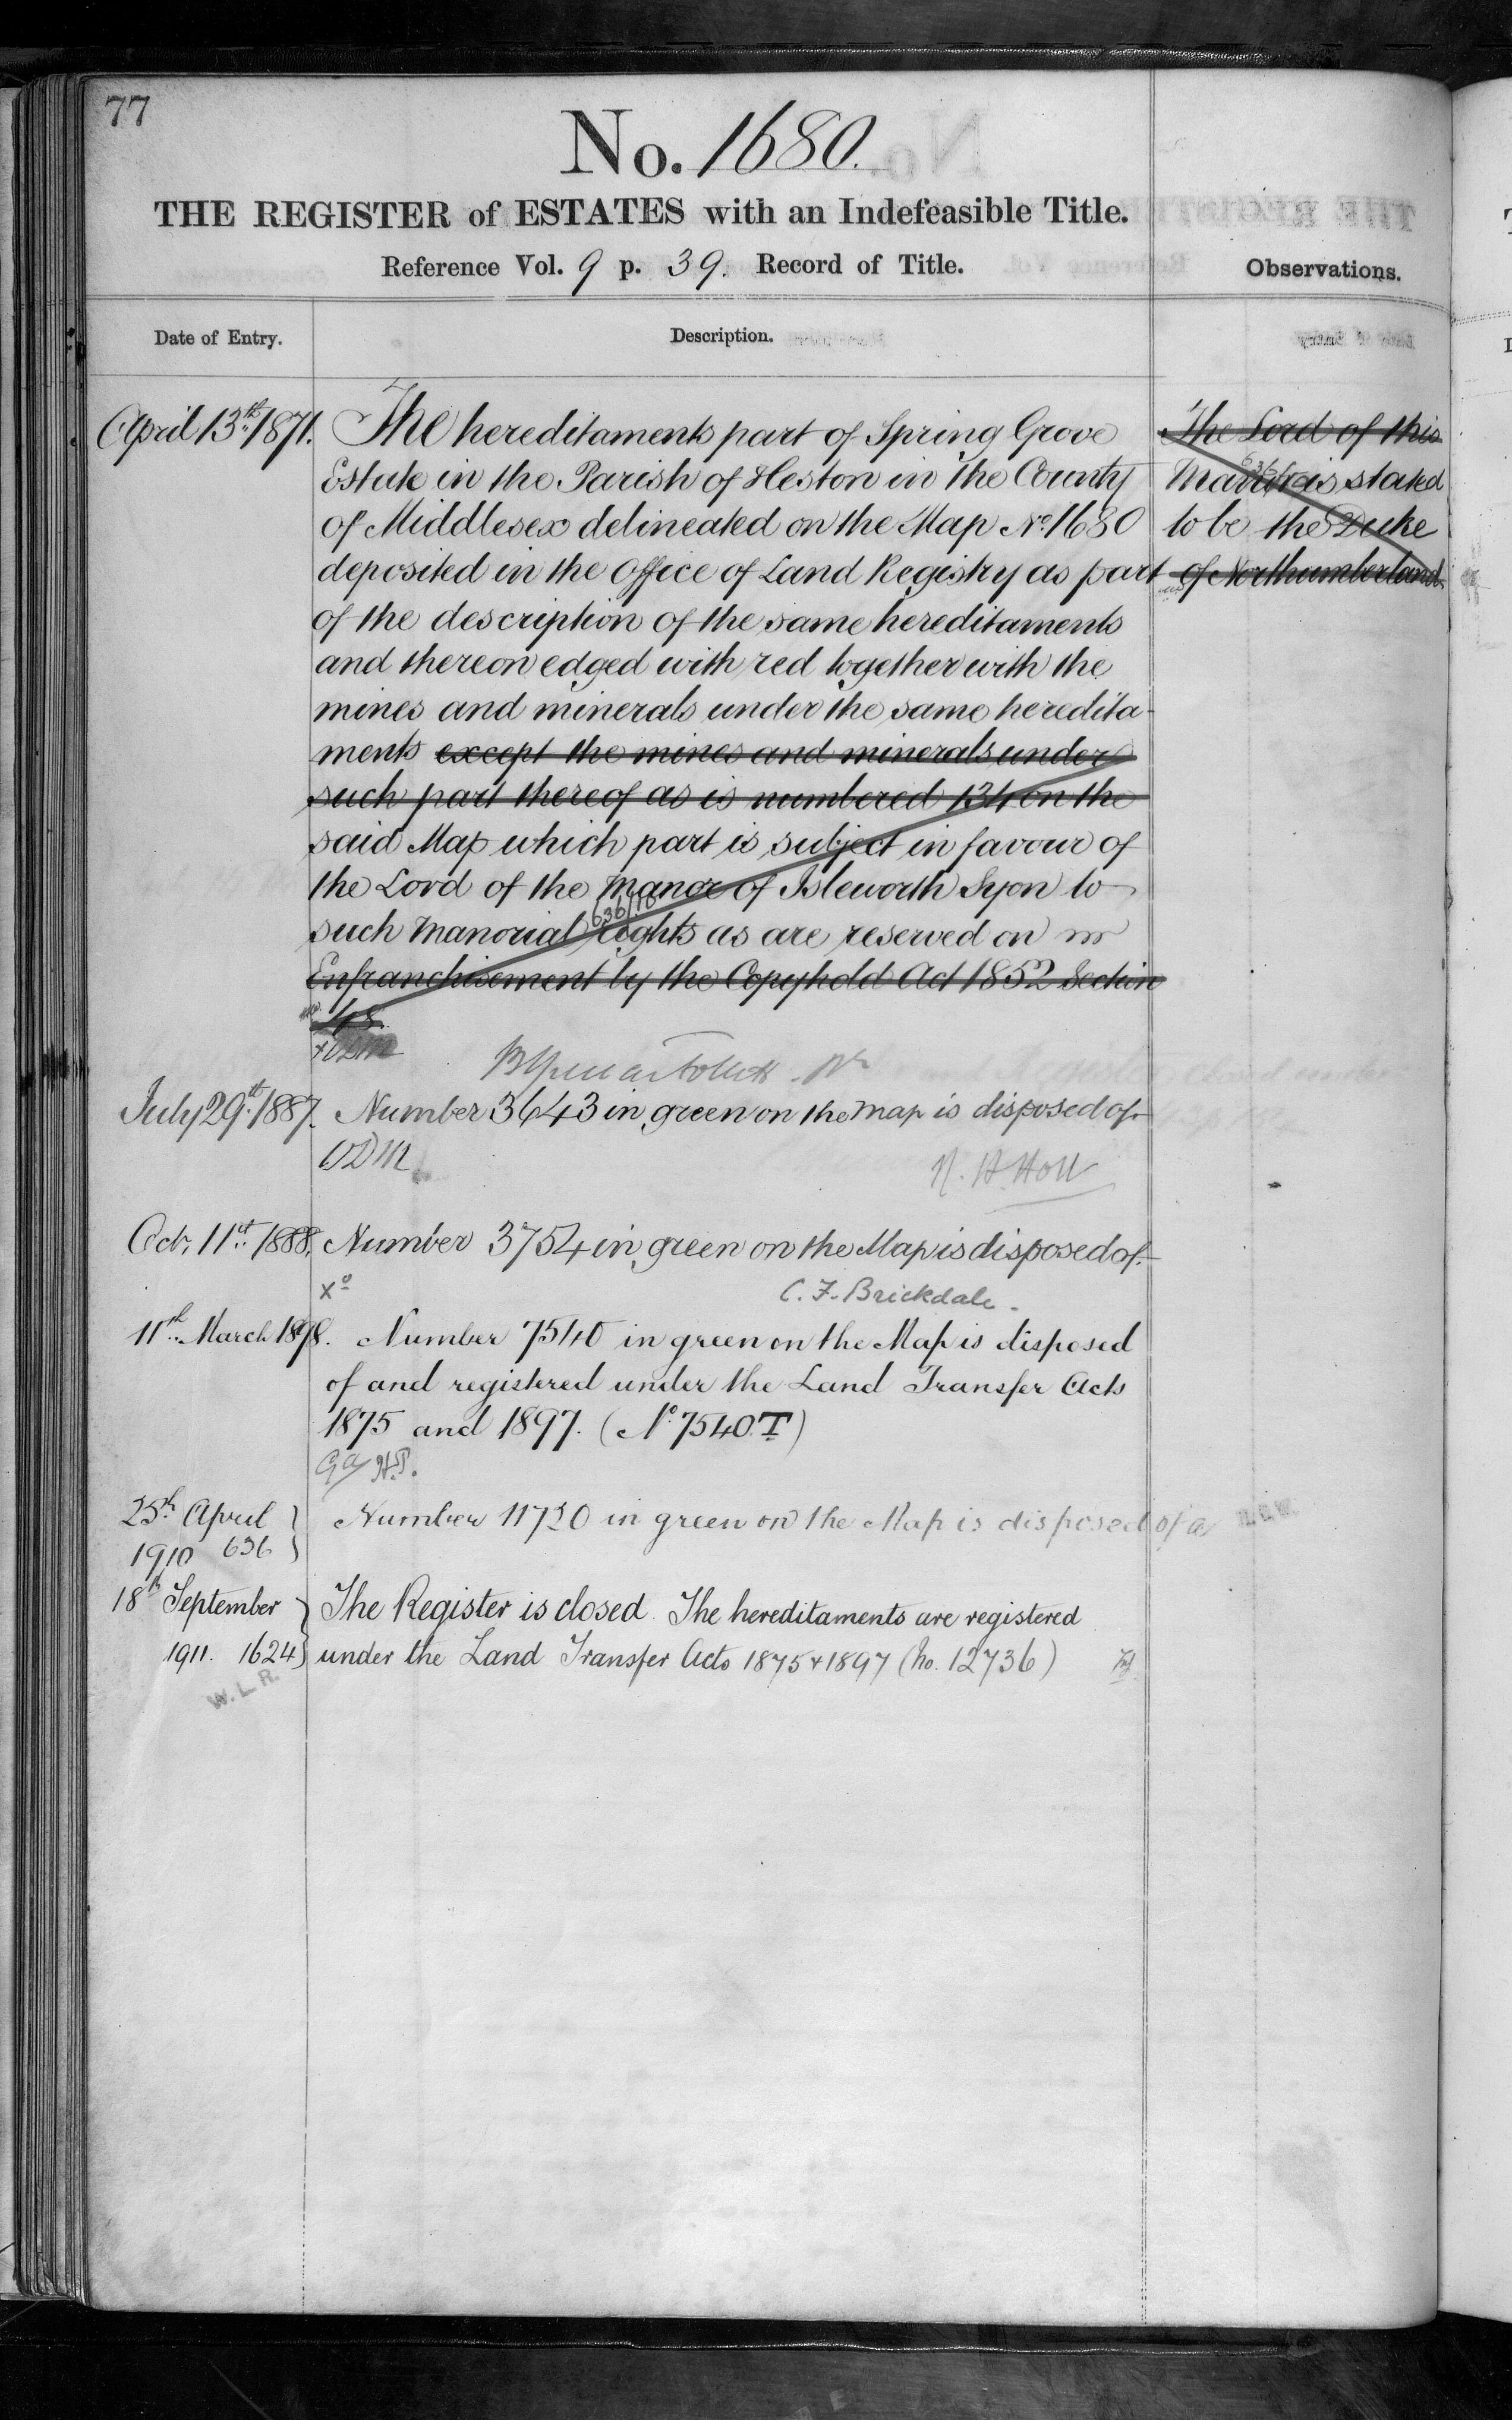 77
No. 1680.
THE REGISTER of ESTATES with an Indefeasible Title.
Reference Vol. 9 p. 39. Record of Title.
Observations.
Date of Entry.
Description.
April 13th 1871. The hereditaments part of Spring Grove
Estate in the Parish of Heston in the County
of Middlesex delineated on the Map No. 1680
deposited in the Office of Land Registry as part
of the description of the same hereditaments
and thereon edged with red together with the
mines and minerals under the same heredita-
ments except the mines and minerals under
such part thereof as is numbered 134 on the
said Map which part is subject in favour of
the Lord of the Manor of Isleworth Syon to
636/10
such Manorial rights as are reserved on
Enfranchisement by the Copyhold Act 1852 Section
48.
The Lord of this
Manor is stated
to be the Duke
of Northumberland.
July 29th 1887. Number 3643 in green on the Map is disposed of.
ODM
Oct. 11th 1888. Number 3754 in green on the Map is disposed of.
Xo
C. F. Brickdale.
11th March 1898. Number 7540 in green on the Map is disposed
of and registered under the Land Transfer Acts
1875 and 1897. (No. 7540.T)
25th April
1910 636
Number 11720 in green on the Map is disposed of
18th September
1911. 1624
The Register is closed. The hereditaments are registered
under the Land Transfer Acts 1875 & 1897 (No. 12736)
W. L. R.